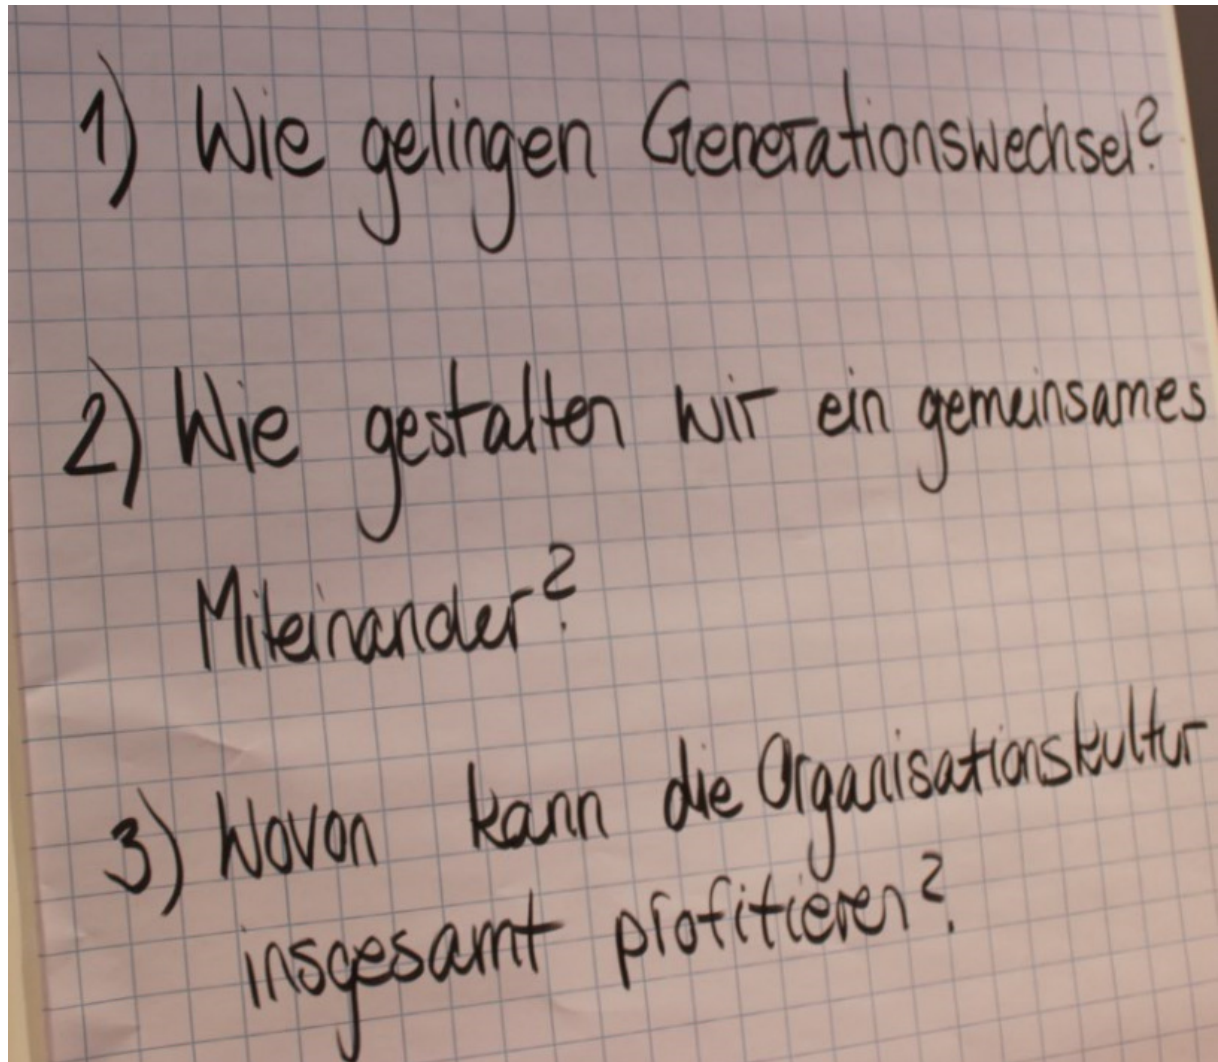 1) Wie gelingen Generationswechsel?
2) Wie gestalten wir ein gemeinsames
Miteinander?
3) Wovon kann die Organisationskultur
insgesamt profitieren?